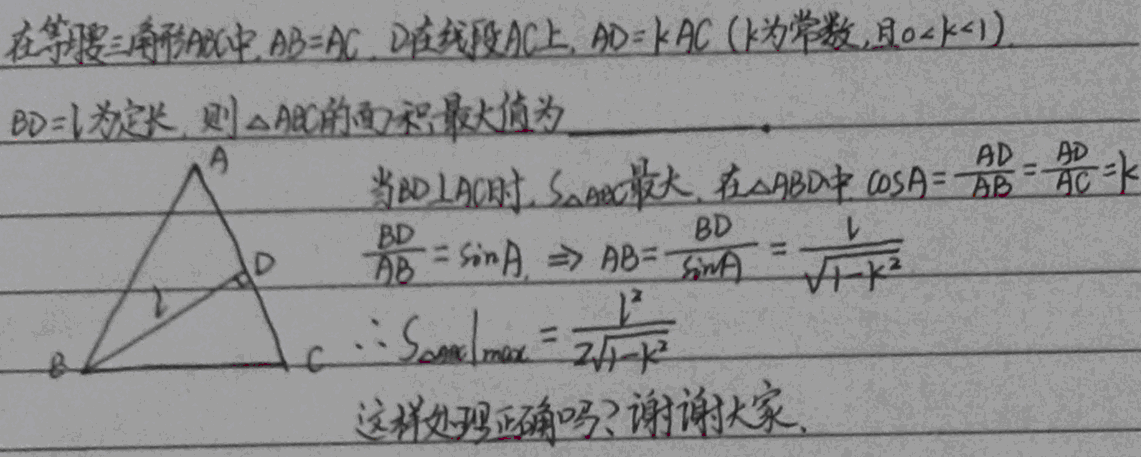 在等腰三角形ABC中,AB=AC,D在线段AC上,AD=kAC(k为常数,且0<k<1),
BD=l为定长,则△ABC的面积最大值为________.
当BD⊥AC时,S△ABC最大,在△ABD中 cosA=AD/AB=AD/AC=k
BD/AB=sinA, ⇒ AB=BD/sinA=l/√(1-k²)
∴S△ABC|max=l²/(2√(1-k²))
这样处理正确吗?谢谢大家.
A
D
l
B
C